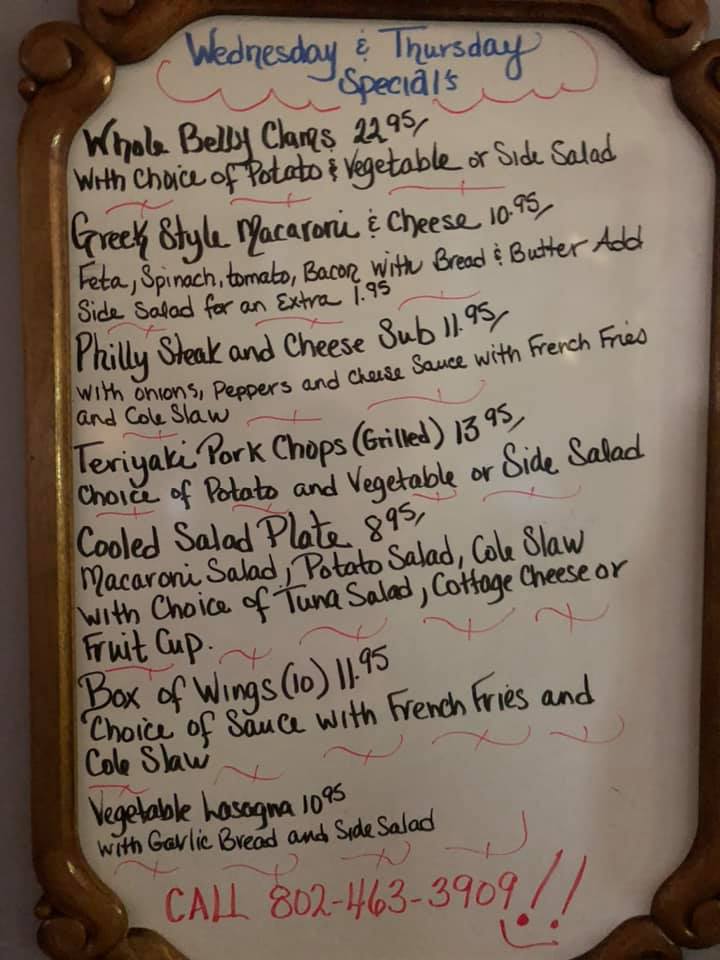 Wednesday & Thursday
Specials
Whole Belly Clams 22.95/
With Choice of Potato & Vegetable or Side Salad
Greek Style Macaroni & Cheese 10.95/
Feta, Spinach, tomato, Bacon With Bread & Butter Add
Side Salad for an Extra 1.95
Philly Steak and Cheese Sub 11.95/
with onions, Peppers and cheese Sauce with French Fries
and Cole Slaw
Teriyaki Pork Chops (Grilled) 13.95/
Choice of Potato and Vegetable or Side Salad
Cooled Salad Plate 8.95/
Macaroni Salad, Potato Salad, Cole Slaw
with Choice of Tuna Salad, Cottage Cheese or
Fruit Cup.
Box of Wings (10) 11.95
Choice of Sauce with French Fries and
Cole Slaw
Vegetable Lasagna 10.95
with Garlic Bread and Side Salad
CALL 802-463-3909!!